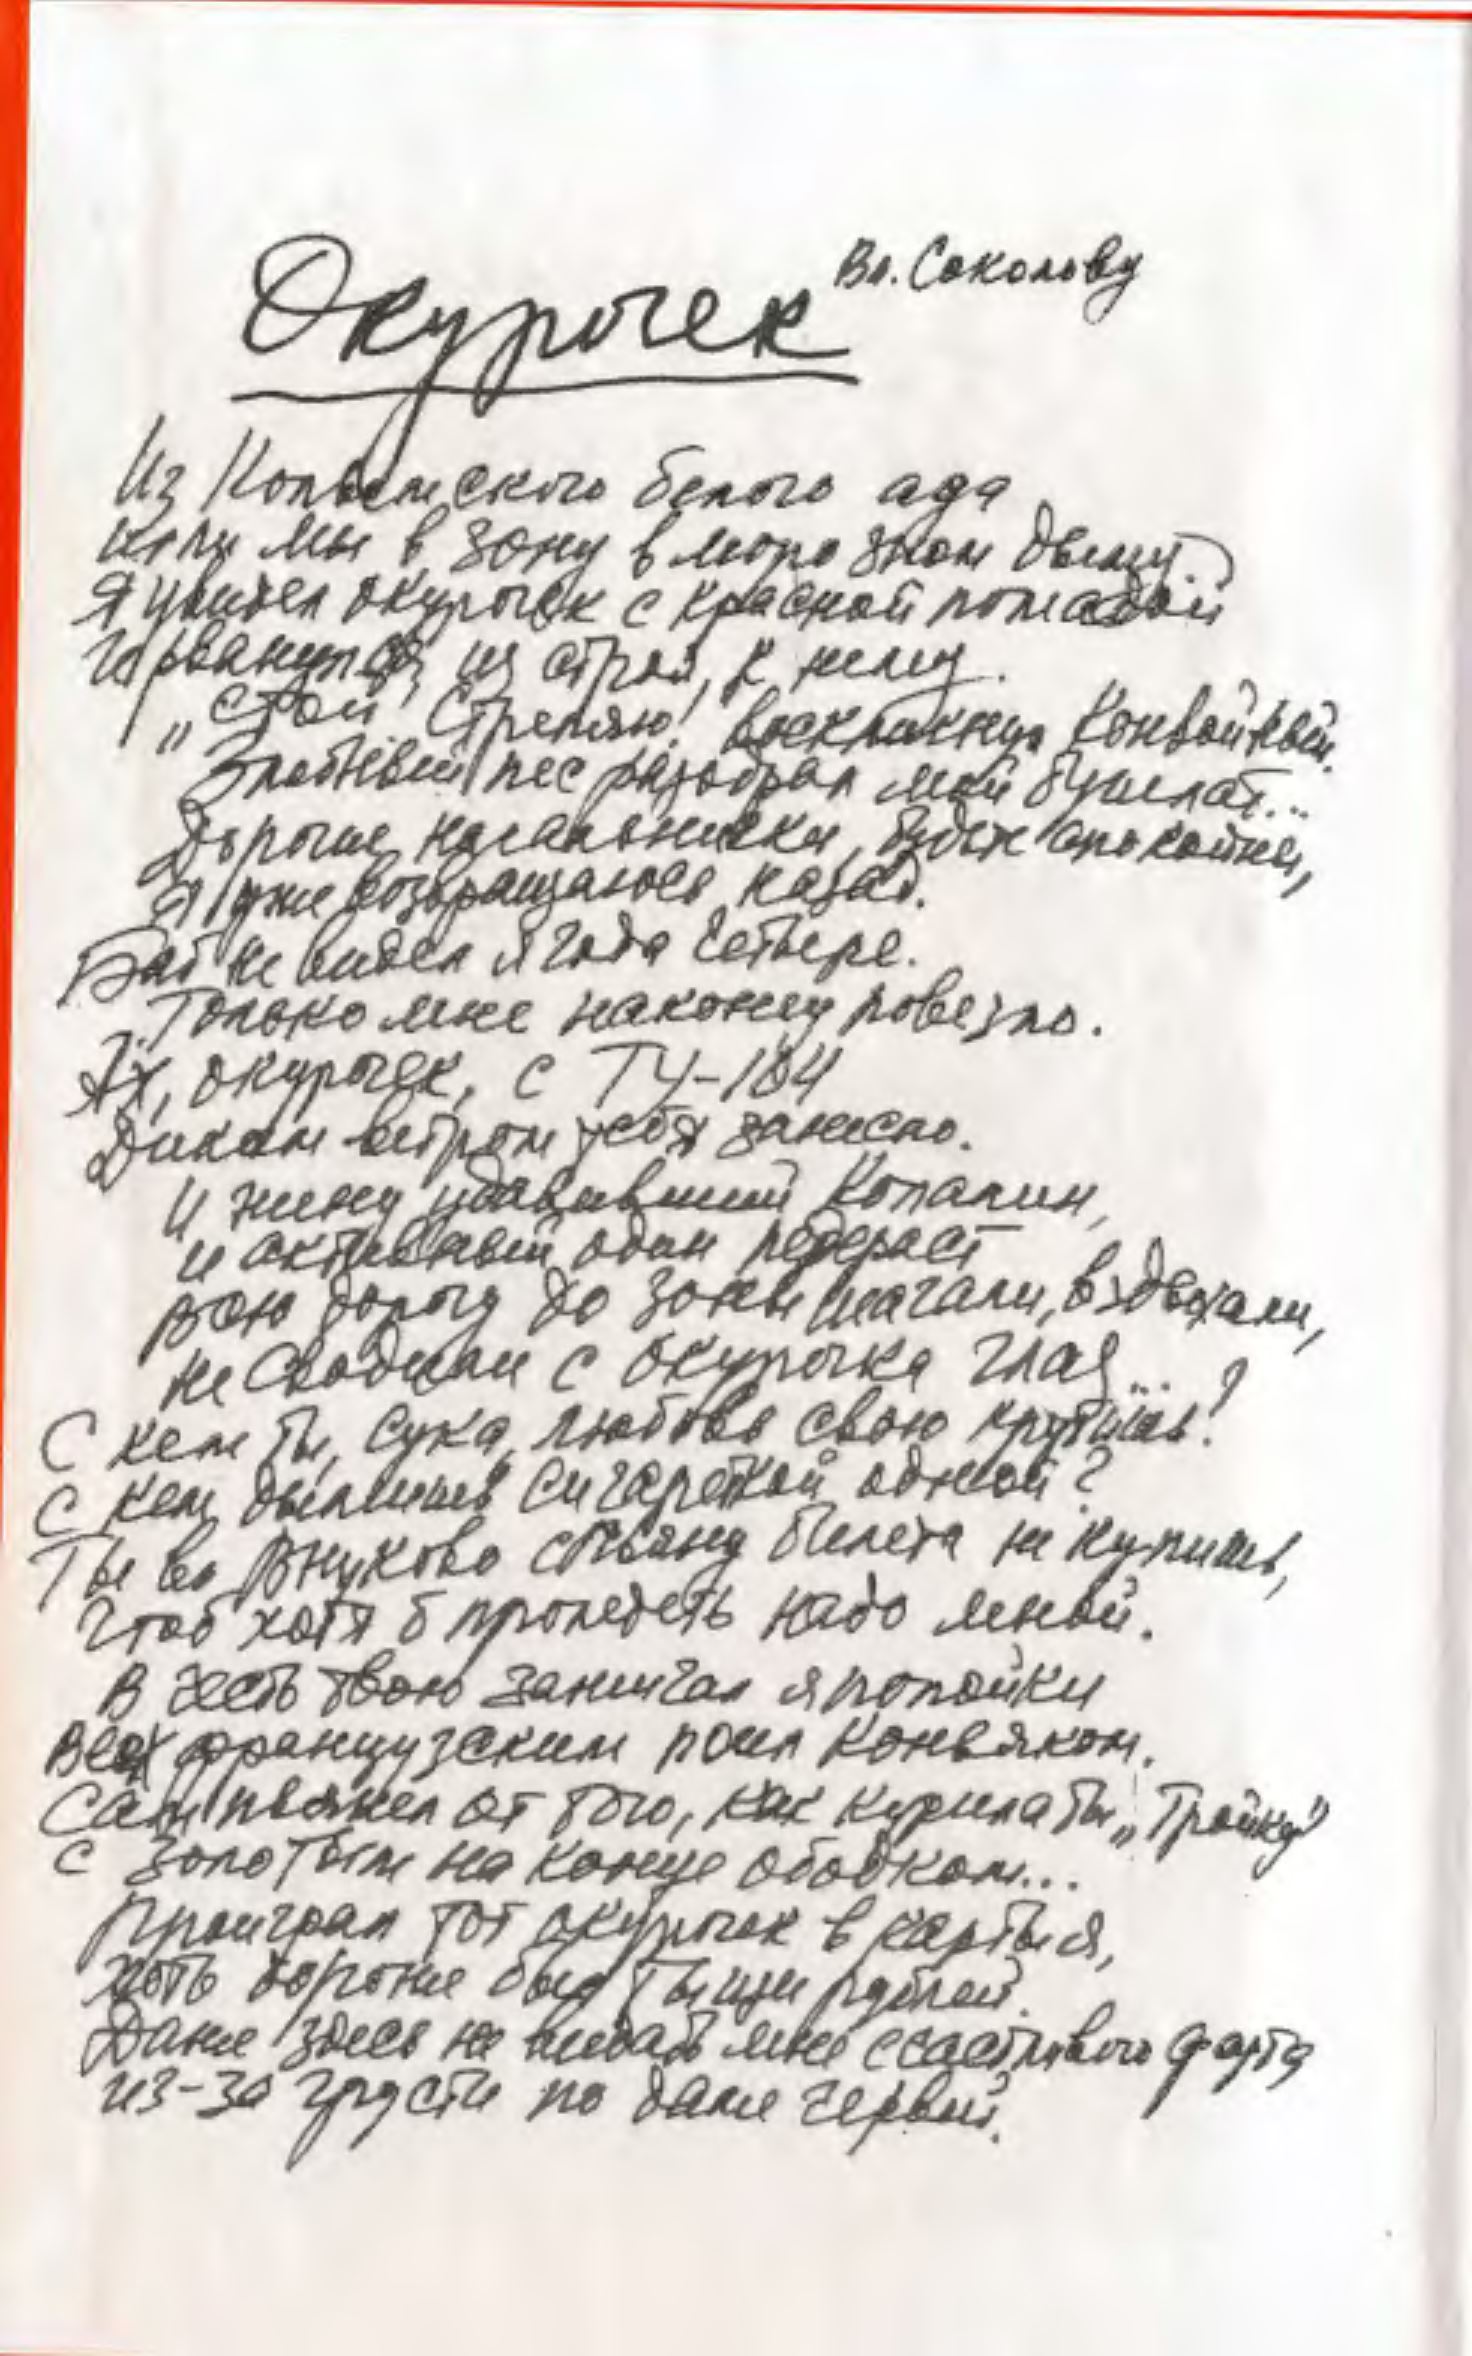 Вл. Соколову
Окурочек
Из Колымского белого ада
шли мы в зону в морозном дыму.
Я увидел окурочек с красной помадой
и рванулся из строя, к нему.
„Стой! Стреляю! воскликнул конвойный.
Злобный пес разодрал мой бушлат...
Дорогие начальнички, будьте спокойны,
Я уже возвращаюсь назад.
Баб не видел я года четыре.
Только мне наконец повезло.
Ах, окурочек, с ТУ-104
Диким ветром тебя занесло.
И жену удавивший Копалин,
и активный один педераст
всю дорогу до зоны шагали, вздыхали,
не сводили с окурочка глаз...
С кем ты, сука, любовь свою крутишь?
С кем дымишь сигареткой одной?
Ты во Внуково спьяну билета не купишь,
Чтоб хотя б пролететь надо мной.
В честь твою зажигал я попойки
Всех французским поил коньяком.
Сам пьянел от того, как курила ты „Тройку"
с золотым на конце ободком...
Проиграл тот окурочек в карты я,
хоть дороже был тыщи рублей.
Даже здесь не видать мне счастливого фарта
из-за грусти по даме червей.